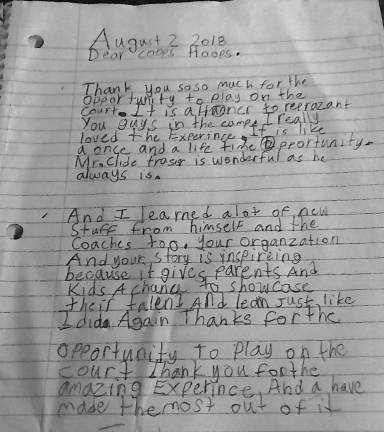 August 2 2018
Dear Coops Hoops.
Thank you soso much for the
opportunity to play on the
court. It is a Honer to reprazant
You guys in the campe I really
loved the Experince. It is like
a once and a life time oportunity.
Mr. Clide fraser is wonderful as he
always is.
And I learned alot of new
Stuff from himself and the
Coaches too. Your organzation
And your story is inspireing
because it gives parents And
Kids A chance to showcase
their talent And lean Just like
I did. Again Thanks for the
opportunity to play on the
court Thank you for the
amazing Experince And a have
made the most out of it